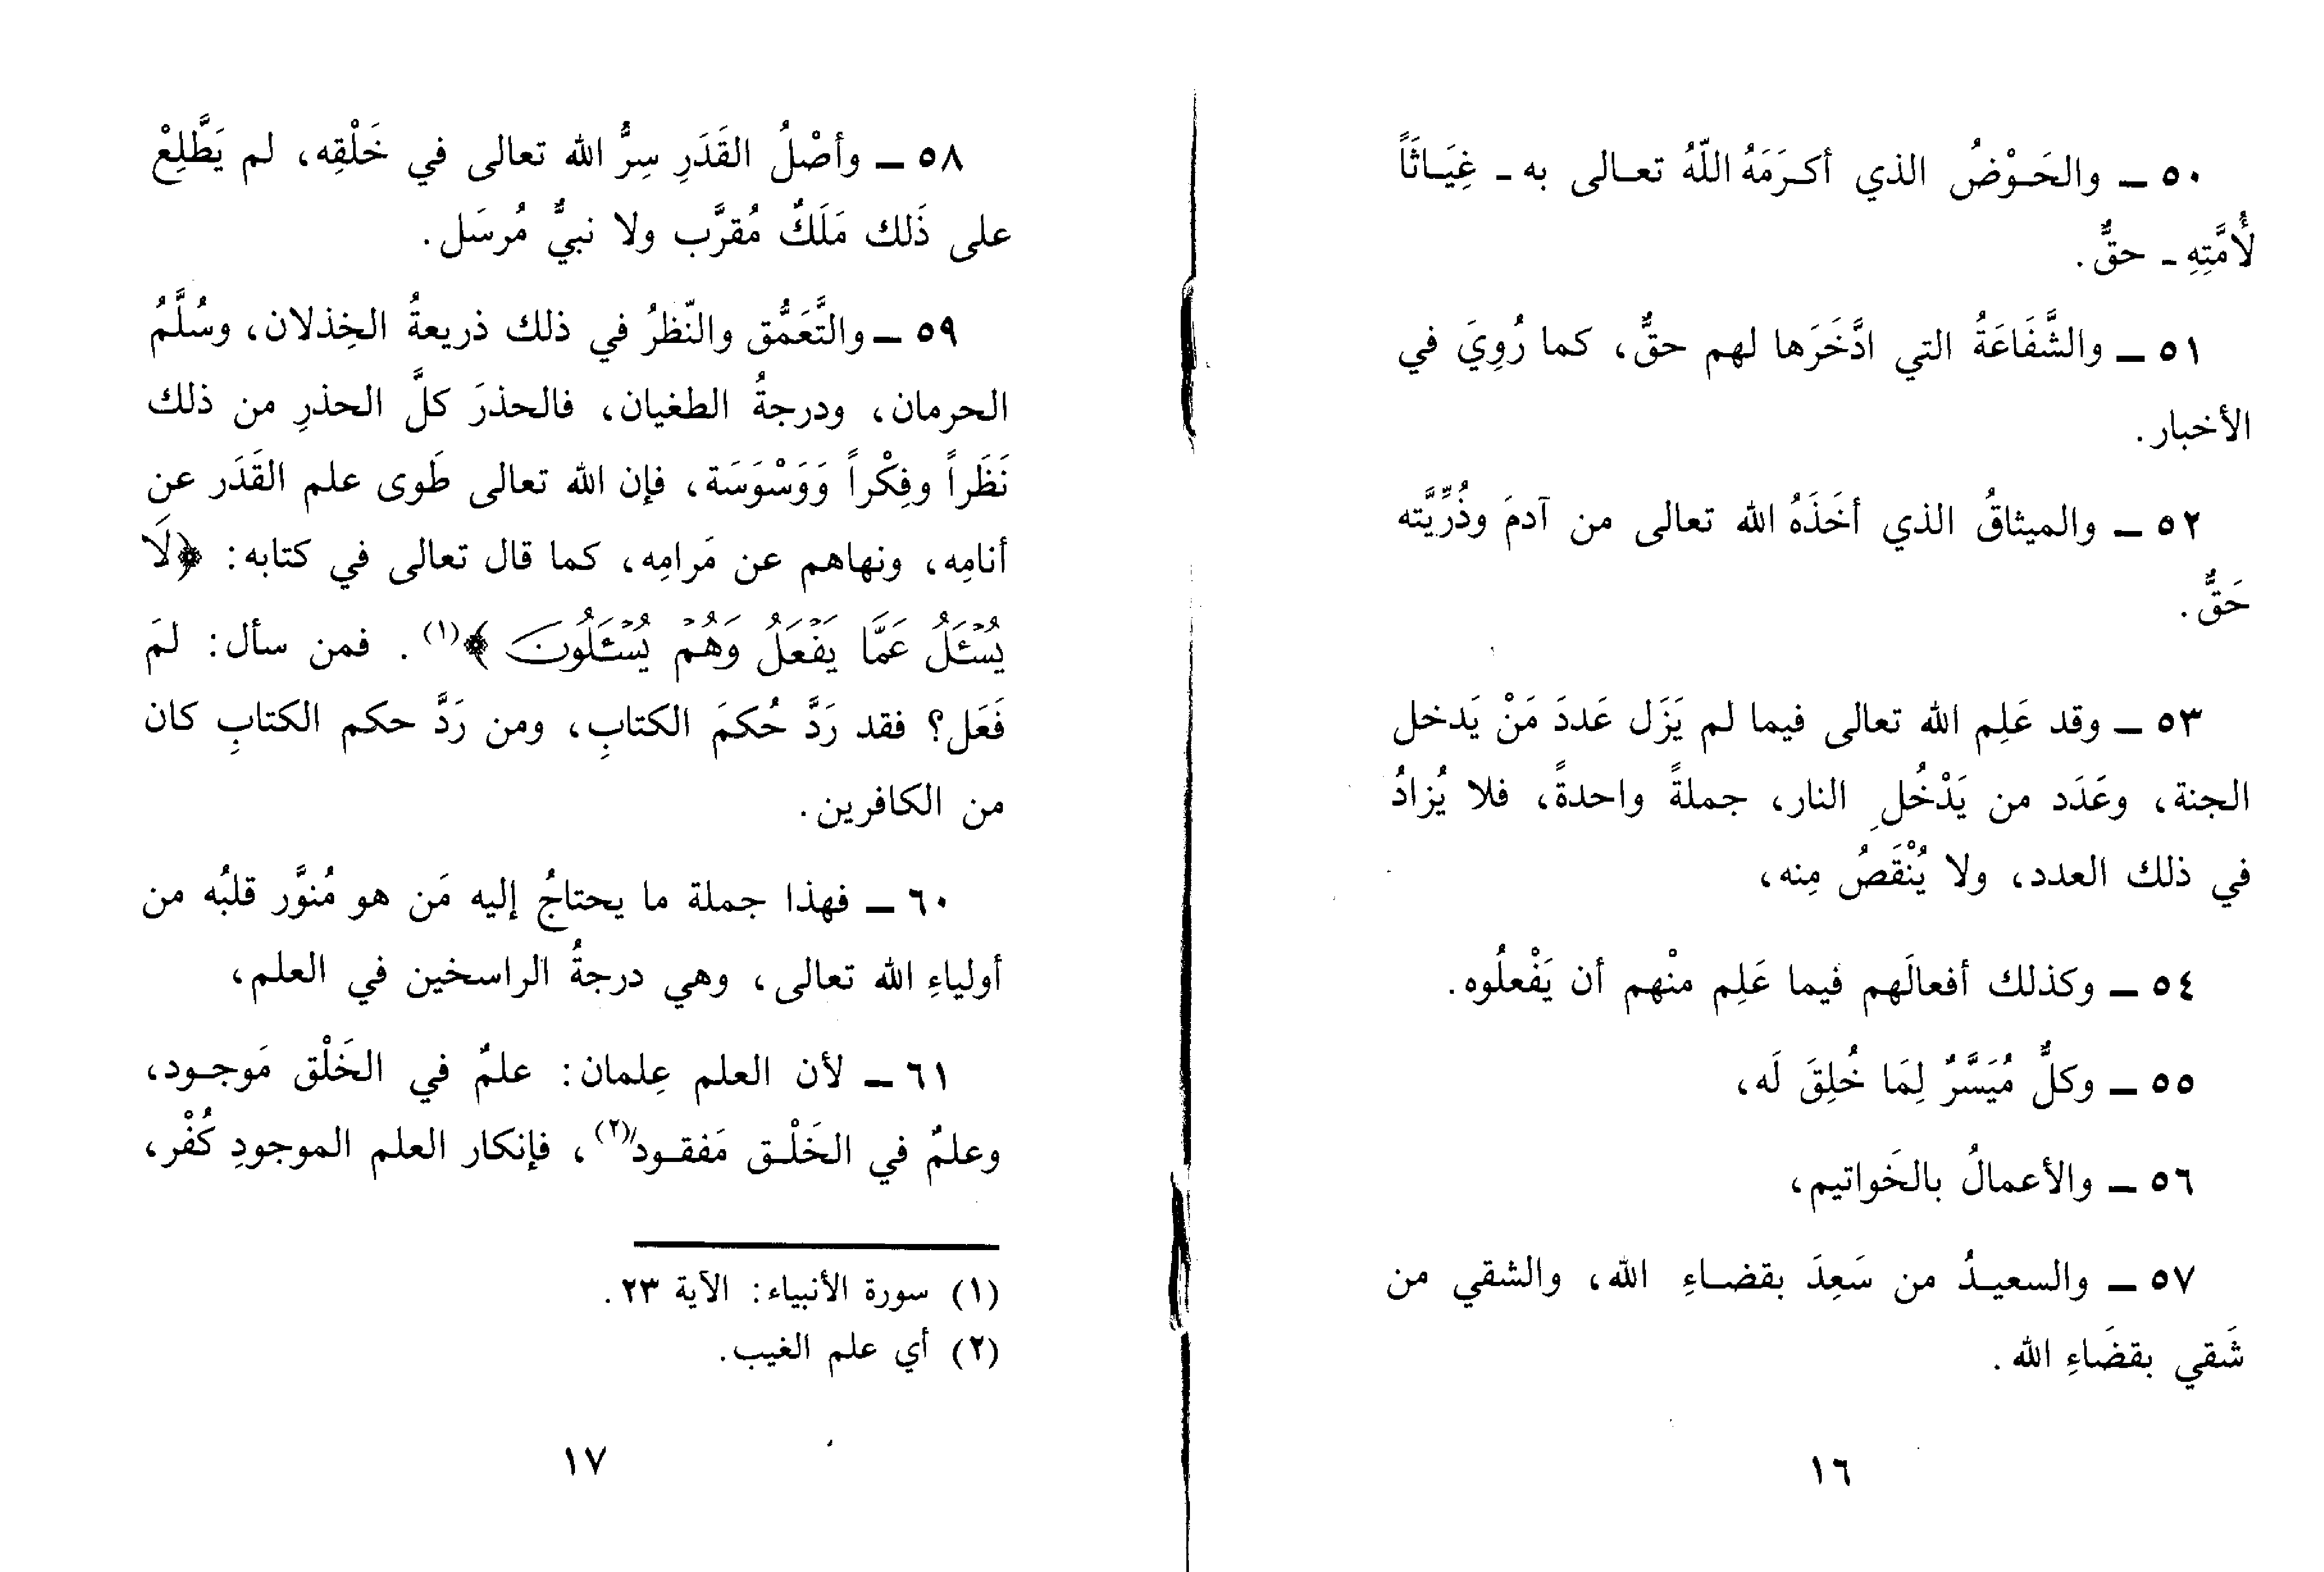 ٥٠ ــ والحَـوْضُ الذي أكـرَمَهُ اللّهُ تعـالى به ـ غِيَـاثَاً
لأُمَّتِهِ ـ حقٌّ.
٥١ ــ والشَّفَاعَةُ التي ادَّخَرَها لهم حقٌّ، كما رُوِيَ في
الأخبار.
٥٢ ــ والميثاقُ الذي أخَذَهُ الله تعالى من آدمَ وذُرِّيَّته
حَقٌّ.
٥٣ ــ وقد عَلِم الله تعالى فيما لم يَزَل عَددَ مَنْ يَدخل
الجنة، وعَدَد من يَدْخُلِ النار، جملةً واحدةً، فلا يُزادُ
في ذلك العدد، ولا يُنْقَصُ مِنه،
٥٤ ــ وكذلك أفعالَهم فيما عَلِم منْهم أن يَفْعلُوه.
٥٥ ــ وكلٌّ مُيَسَّرٌ لِمَا خُلِقَ لَه،
٥٦ ــ والأعمالُ بالخَواتيم،
٥٧ ــ والسعيـدُ من سَعِدَ بقضـاءِ الله، والشقي من
شَقي بقضَاءِ الله.
١٦
٥٨ ــ وأصْلُ القَدَرِ سِرُّ الله تعالى في خَلْقِه، لم يَطَّلِعْ
على ذَلك مَلَكٌ مُقرَّب ولا نبيٌّ مُرسَل.
٥٩ ــ والتَّعَمُّق والنّظرُ في ذلك ذريعةُ الخِذلان، وسُلَّمُ
الحرمان، ودرجةُ الطغيان، فالحذرَ كلَّ الحذرِ من ذلك
نَظَراً وفِكْراً وَوَسْوَسَة، فإن الله تعالى طَوى علم القَدَر عن
أنامِه، ونهاهم عن مَرامِه، كما قال تعالى في كتابه: ﴿لَا
يُسْـَٔلُ عَمَّا يَفْعَلُ وَهُمْ يُسْـَٔلُونَ﴾(١). فمن سأل: لمَ
فَعَل؟ فقد رَدَّ حُكمَ الكتابِ، ومن رَدَّ حكم الكتابِ كان
من الكافرين.
٦٠ ــ فهذا جملة ما يحتاجُ إليه مَن هو مُنوَّر قلبُه من
أولياءِ الله تعالى، وهي درجةُ الراسخين في العلم،
٦١ ــ لأن العلم عِلمان: علمٌ في الخَلْق مَوجـود،
وعلمٌ في الخَلْـق مَفقـود(٢)، فإنكار العلم الموجودِ كُفْر،
(١) سورة الأنبياء: الآية ٢٣.
(٢) أي علم الغيب.
١٧